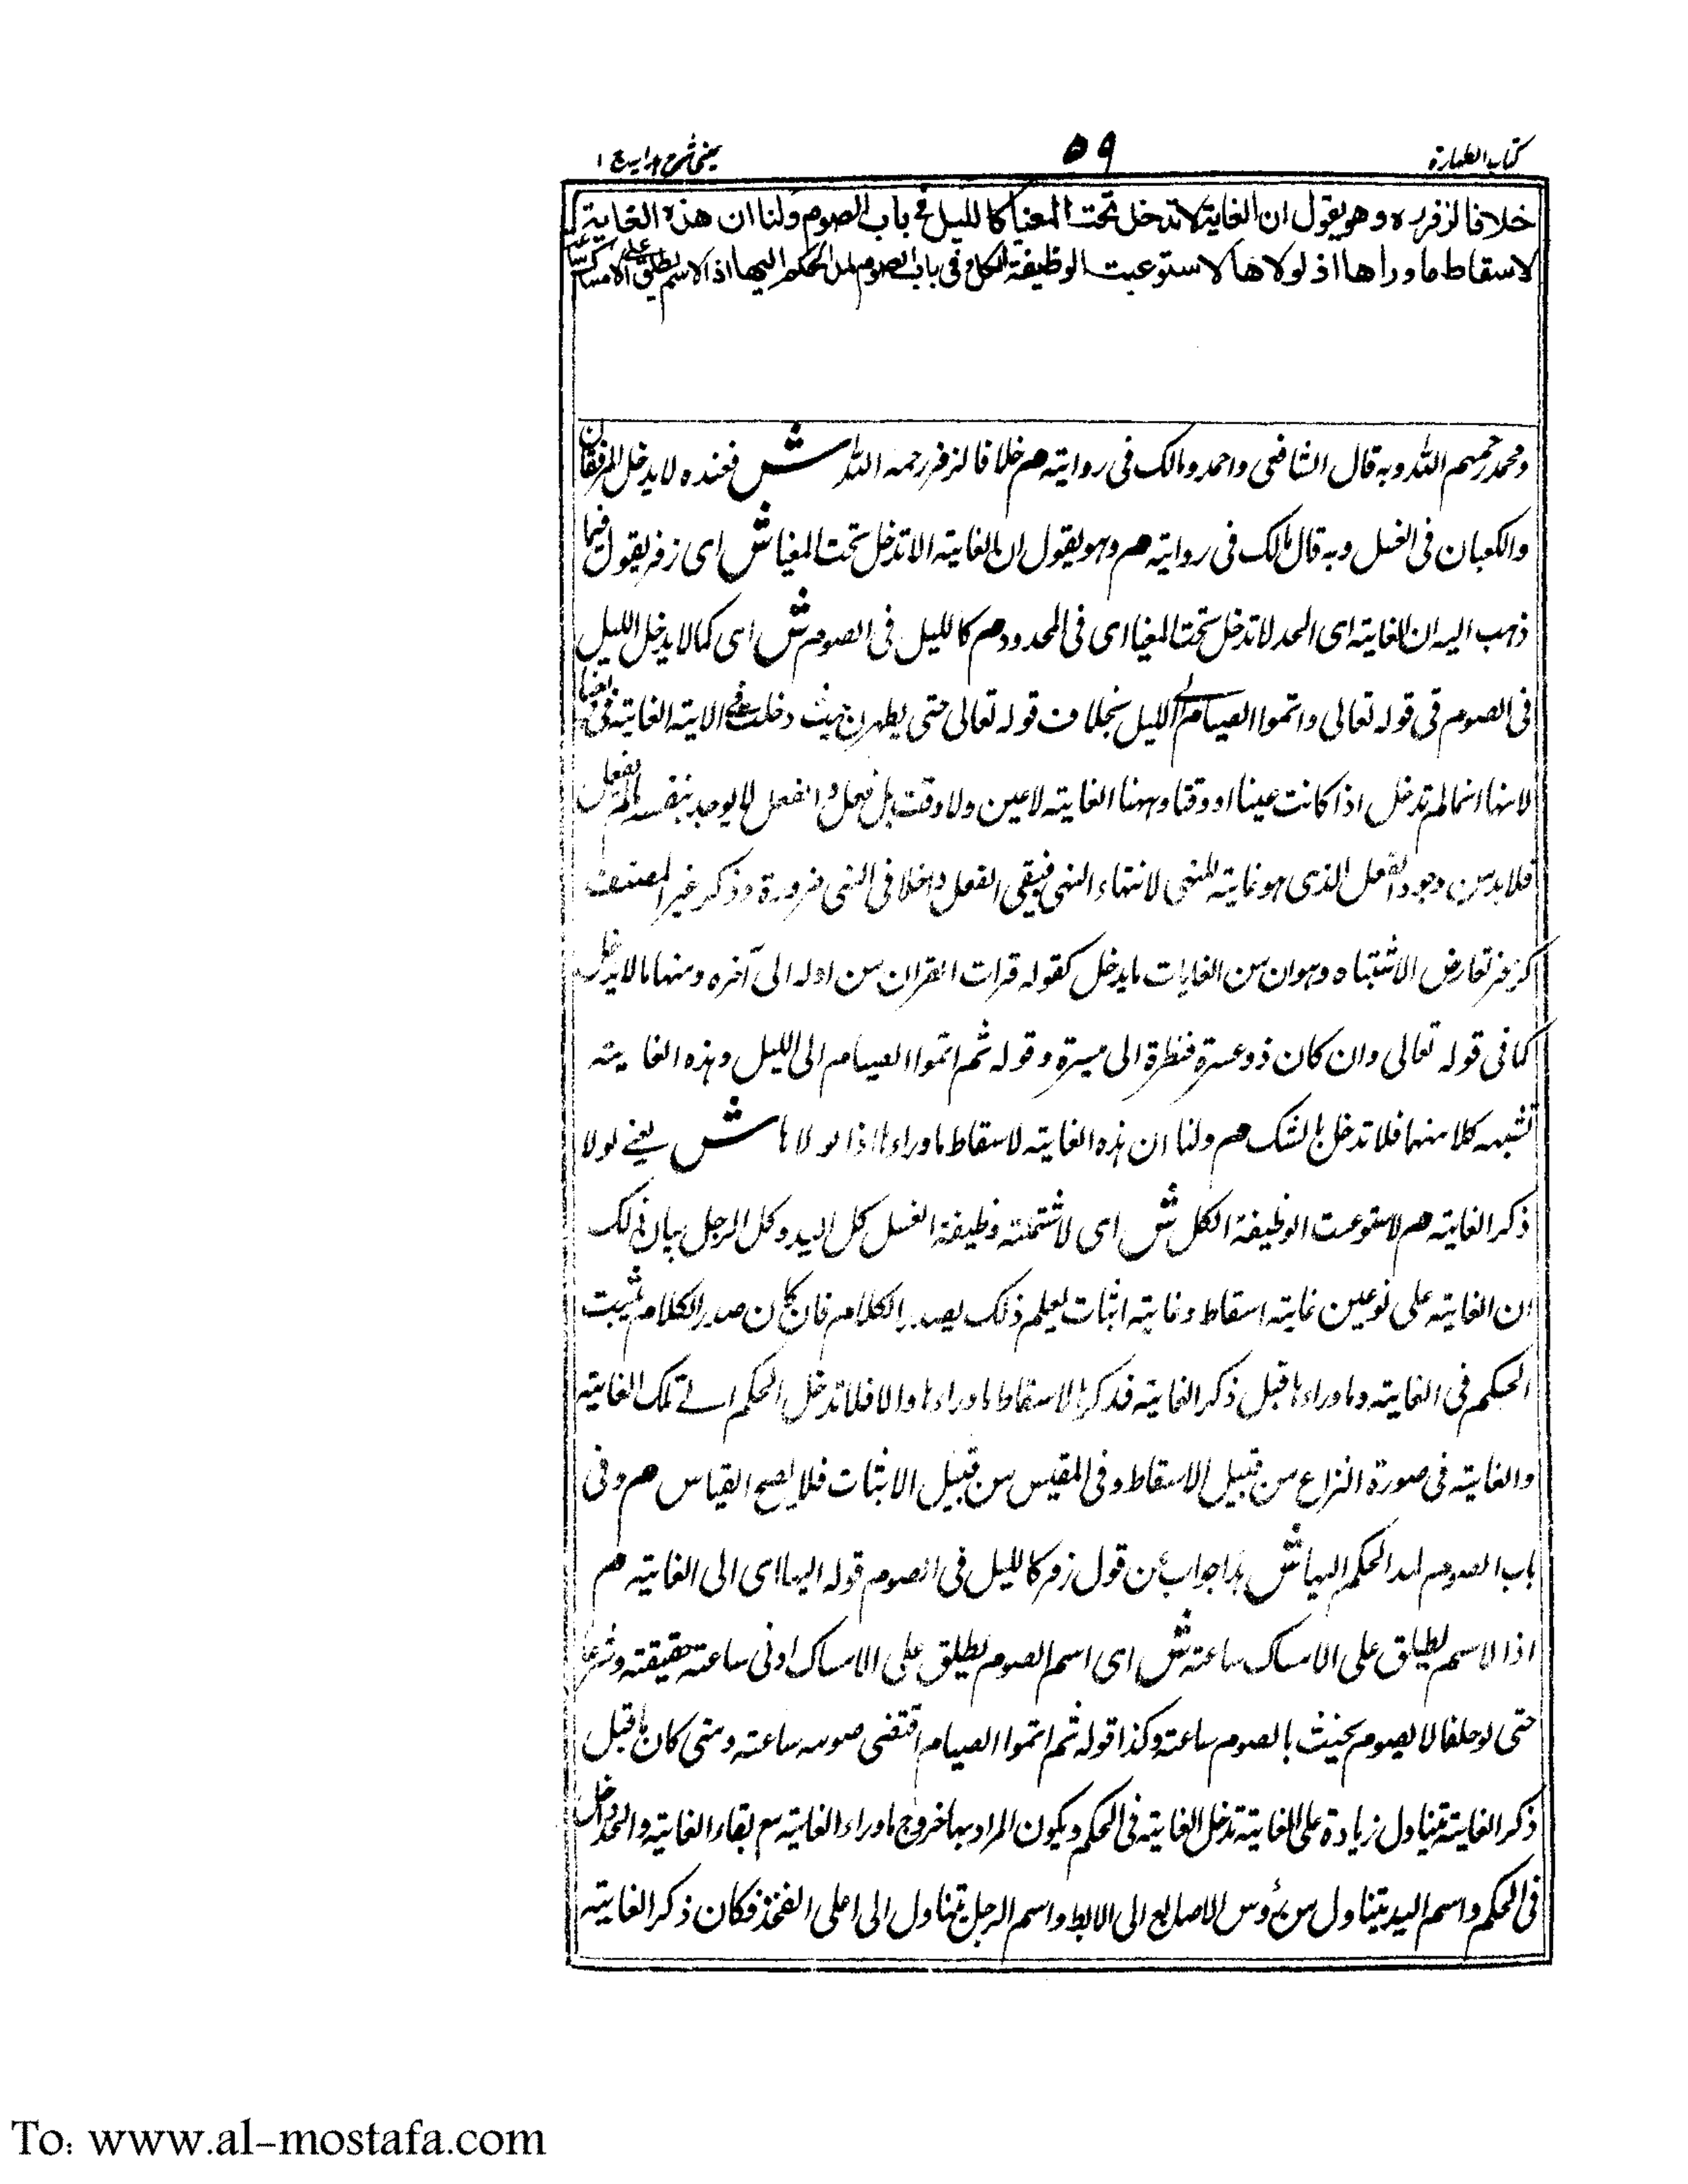 كتاب الطهارة
٥٩
عينى شرح هدايه ج ١
خلافا لزفر ره وهو يقول ان الغاية لا تدخل تحت المغيا كالليل فى باب الصوم ولنا ان هذه الغاية
لاسقاط ما وراها اذ لولاها لاستوعبت الوظيفة الكل وفى باب الصوم لمد الحكم اليها اذ الاسم يطلق على الامساك ساعة
ومحمد رحمهم الله وبه قال الشافعى واحمد ومالك فى رواية هم خلافا لزفر رحمه الله ش فعنده لا يدخل المرفقان
والكعبان فى الغسل وبه قال مالك فى رواية هم وهو يقول ان الغاية لا تدخل تحت المغيا ش اى زفر يقول فيما
ذهب اليه ان الغاية اى الحد لا تدخل تحت المغيا اى فى المحدود هم كالليل فى الصوم ش اى كما لا يدخل الليل
فى الصوم فى قوله تعالى واتموا الصيام الى الليل بخلاف قوله تعالى حتى يطهرن حيث دخلت فى الاية الغاية فى
لانها انما لم تدخل اذا كانت عينا او وقتا وههنا الغاية لا عين ولا وقت بل فعل والفعل لا يوجد بنفسه ما لم يفعل
فلا بد من وجود الفعل الذى هو غاية النهى لانتهاء النهى فيبقى الفعل داخلا فى النهى ضرورة وذكر غير المصنف
لزفر تعارض الاشتباه وهو ان من الغايات ما يدخل كقوله قرات القران من اوله الى آخره ومنها ما لا يدخل
كما فى قوله تعالى وان كان ذو عسرة فنظرة الى ميسرة وقوله ثم اتموا الصيام الى الليل وهذه الغاية
تشبه كلا منهما فلا تدخل بالشك هم ولنا ان هذه الغاية لاسقاط ما وراءها اذا لولاها ش يعنے لولا
ذكر الغاية هم لاستوعبت الوظيفة الكل ش اى لاشتملت وظيفة الغسل كل اليد وكل الرجل بيان ذلك
ان الغاية على نوعين غاية اسقاط وغاية اثبات يعلم ذلك بصدر الكلام فان كان صدر الكلام يثبت
الحكم فى الغاية وما وراءها قبل ذكر الغاية فذكرها لاسقاط ما وراءها والا فلا تدخل الحكم الے تلك الغاية
والغاية فى صورة النزاع من قبيل الاسقاط وفى المقيس من قبيل الاثبات فلا يصح القياس هم وفى
باب الصوم لمد الحكم اليها ش هذا جواب عن قول زفر كالليل فى الصوم قوله اليها اى الى الغاية هم
اذا الاسم يطلق على الامساك ساعة ش اى اسم الصوم يطلق على الامساك ادنى ساعة حقيقة وشرعا
حتى لو حلف لا يصوم يحنث بالصوم ساعة وكذا قوله ثم اتموا الصيام اقتضى صومه ساعة ومتى كان ما قبل
ذكر الغاية يتناول زيادة على الغاية تدخل الغاية فى الحكم ويكون المراد بها خروج ما وراء الغاية مع بقاء الغاية والحد داخل
فى الحكم واسم اليد يتناول من رؤس الاصابع الى الابط واسم الرجل يتناول الى اعلى الفخذ فكان ذكر الغاية
To: www.al-mostafa.com